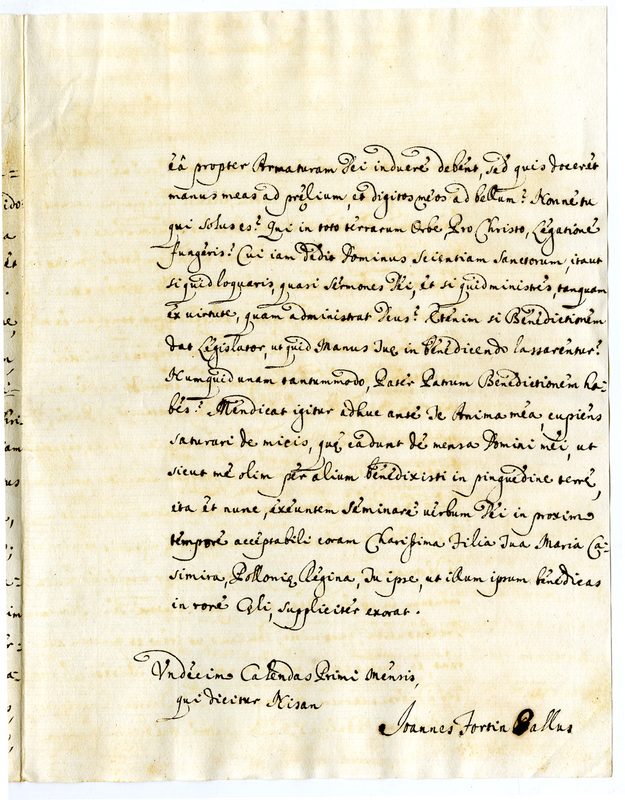 eâ propter Armaturam Dei induere debent, sed quis doceret
manus meas ad pręlium, et digitos meos ad bellum? Nonne tu
qui solus es? Qui in toto terrarum Orbe, Pro Christo, Legatione
fungeris? Cui iam dedit Dominus Scientiam Sanctorum, itaut
si quid loquaris, quasi Sermones Dei, et si quid ministres, tanquam
ex virtute, quam administrat Deus? Etenim si Benedictionem
dat Legislator, ut quid Manus Tuę in benedicendo lassarentur?
Numquid unam tantummodo, Pater Patrum Benedictionem ha-
bes? Mendicat igitur adhuc ante Te Anima mea, cupiens
saturari de micis, quę cadunt de mensa Domini mei, ut
sicut me olim per alium benedixisti in pinguedine terrę,
ita et nunc, exeuntem seminare verbum Dei in proximo
tempore acceptabili coram Charissima Filia Tua Maria Ca-
simira, Pollonię Regina, Tu ipse, ut illum ipsum benedicas
in rore Cęli, suppliciter exorat.
Undecimo Calendas Primi Mensis,
qui dicitur Nisan
Joannes Fortin Gallus